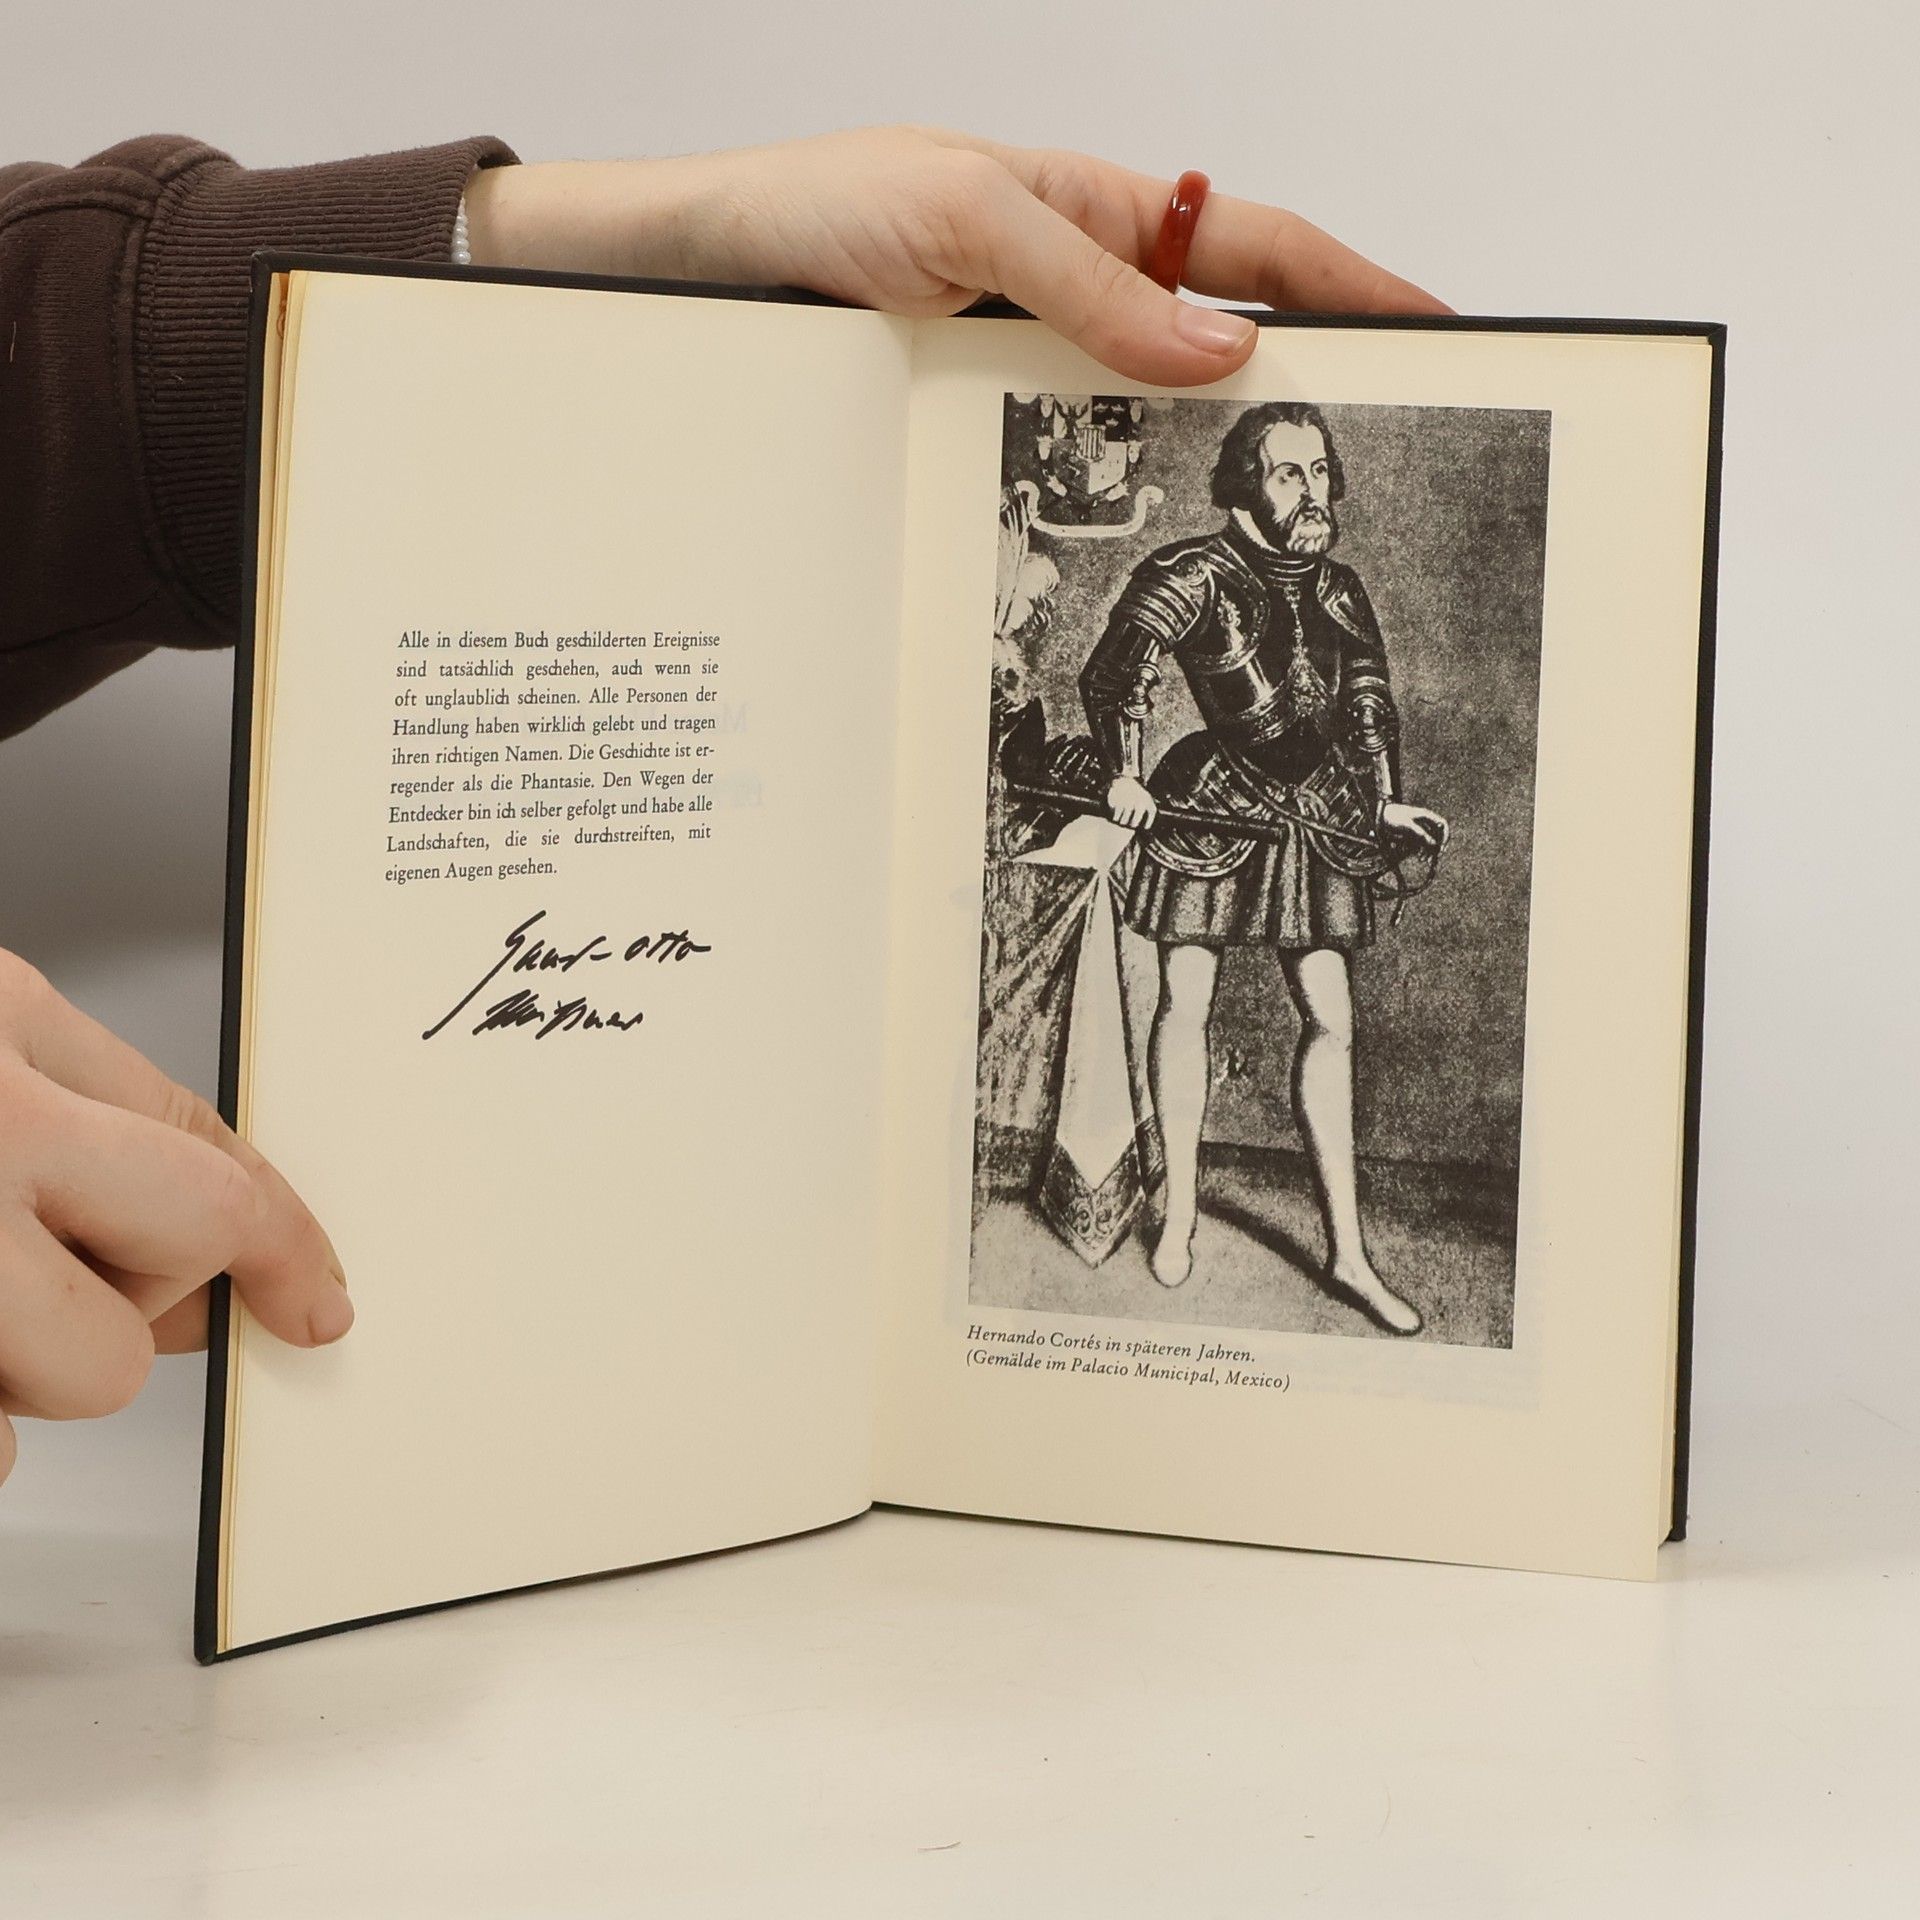 Alle in diesem Buch geschilderten Ereignisse
sind tatsächlich geschehen, auch wenn sie
oft unglaublich scheinen. Alle Personen der
Handlung haben wirklich gelebt und tragen
ihren richtigen Namen. Die Geschichte ist er-
regender als die Phantasie. Den Wegen der
Entdecker bin ich selber gefolgt und habe alle
Landschaften, die sie durchstreiften, mit
eigenen Augen gesehen.
Otto
Hernando Cortés in späteren Jahren.
(Gemälde im Palacio Municipal, Mexico)